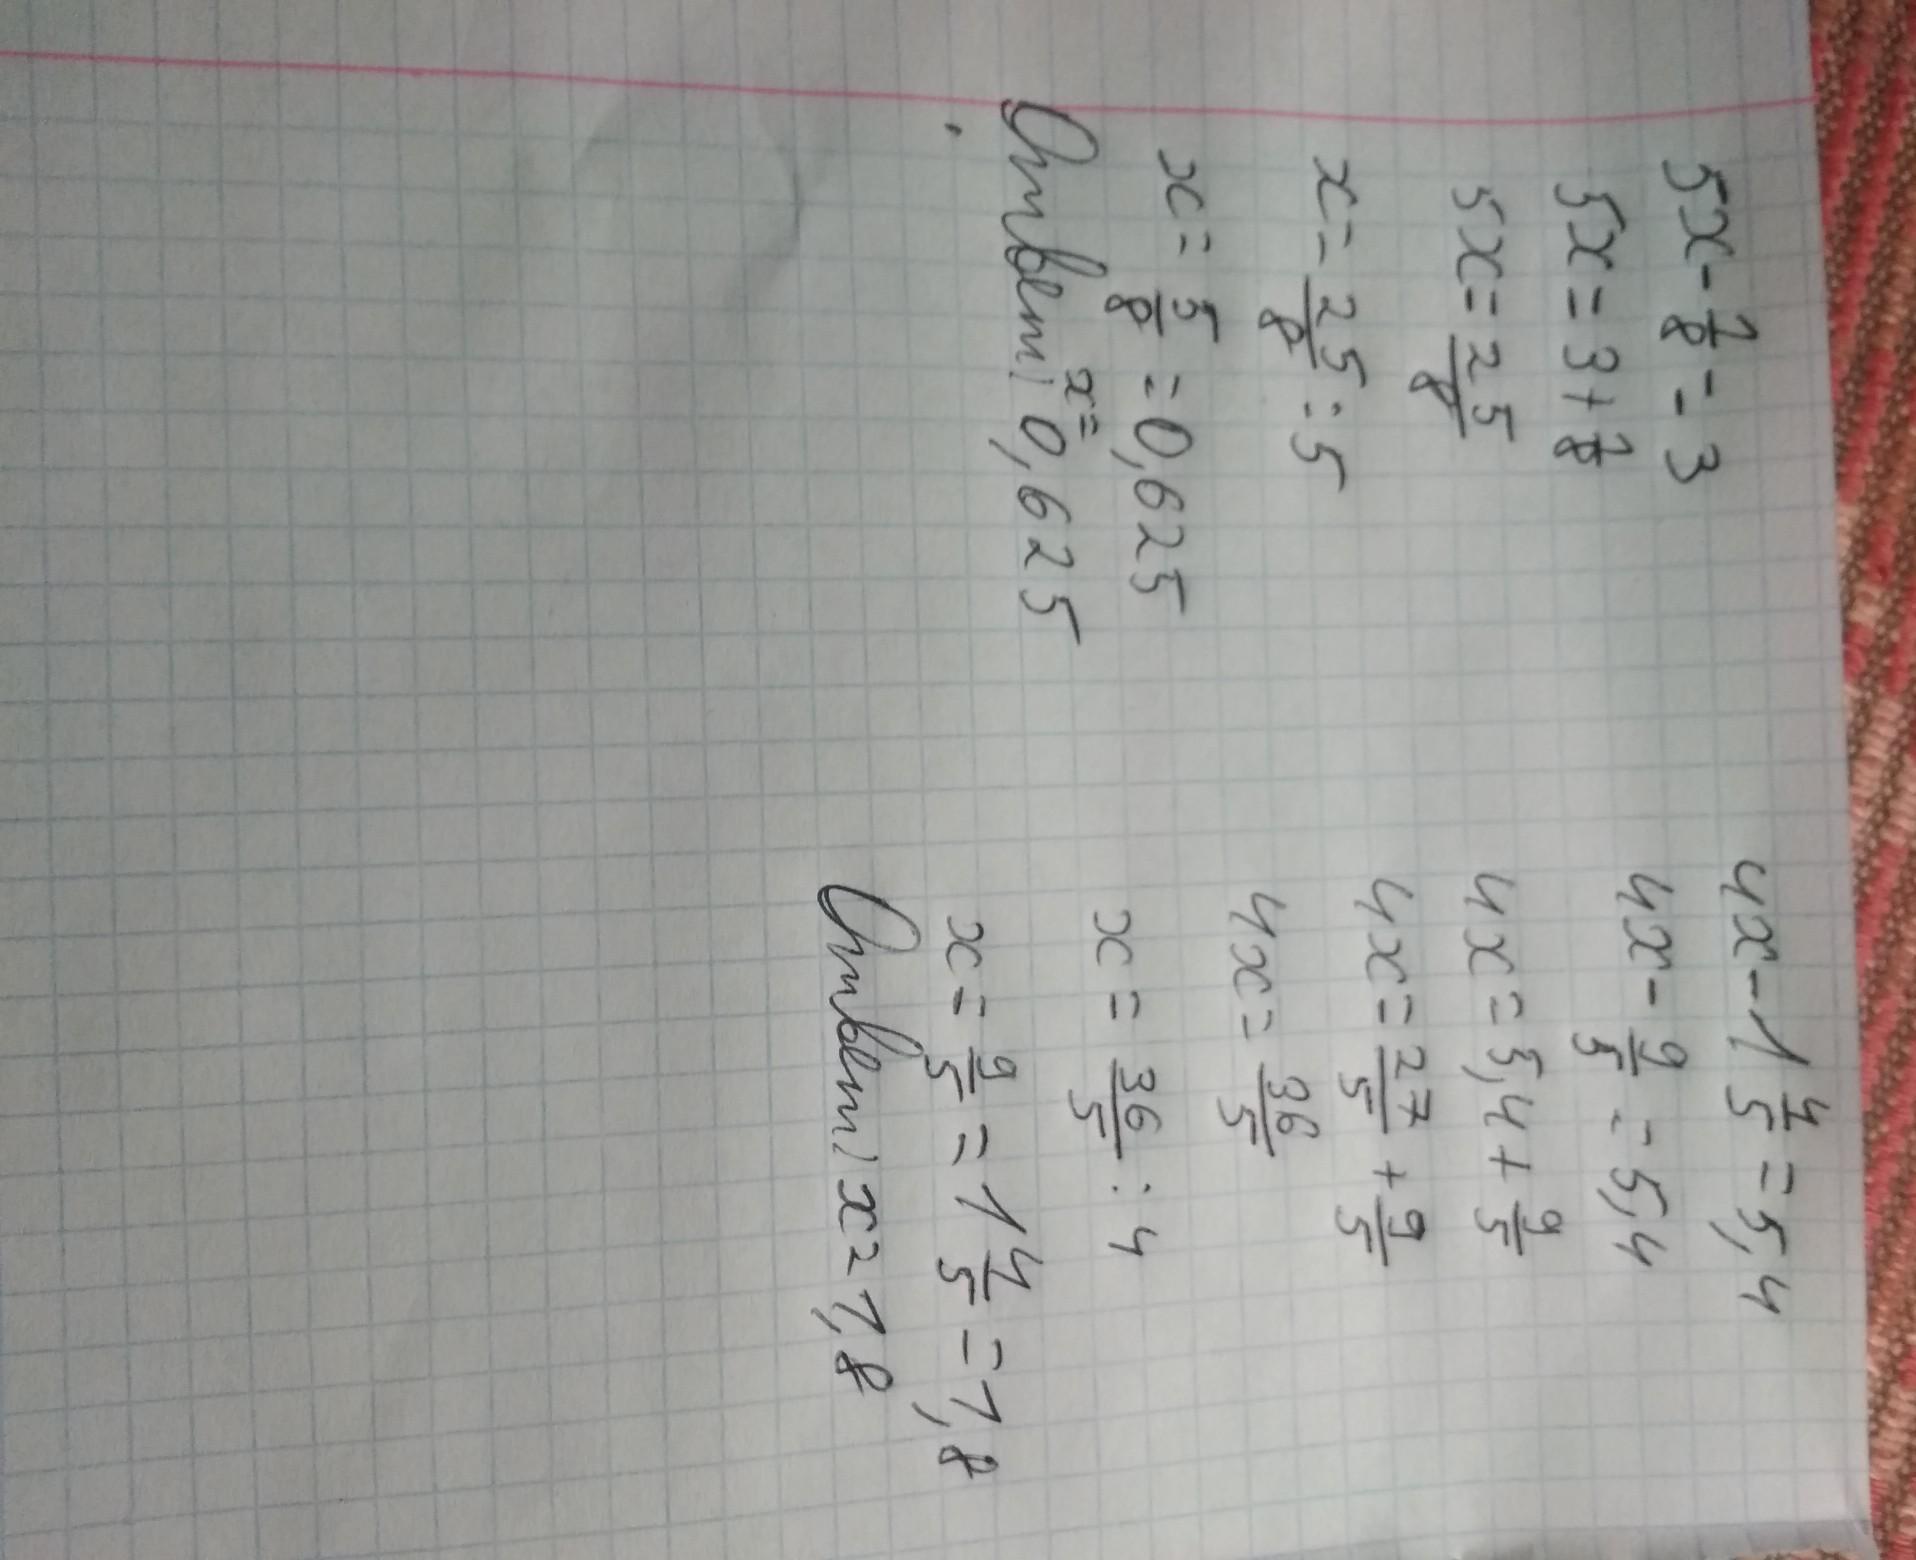 5x - 1/8 = 3
5x = 3 + 1/8
5x = 25/8
x = 25/8 : 5
x = 5/8 = 0,625
Ответ: x = 0,625
4x - 1 4/5 = 5,4
4x - 9/5 = 5,4
4x = 5,4 + 9/5
4x = 27/5 + 9/5
4x = 36/5
x = 36/5 : 4
x = 9/5 = 1 4/5 = 1,8
Ответ: x = 1,8